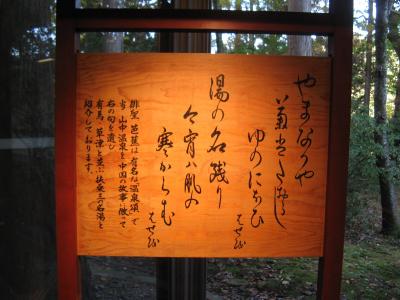 やまなかや
菊はたおらじ
ゆのにほひ
はせを
湯の名残り
今宵ハ肌の
寒からむ
はせを
俳聖 芭蕉は有名な温泉頌で
当 山中温泉を中国の故事に倣って
右の句を選び
有馬、草津と並ぶ扶桑三の名湯と
紹介しております。